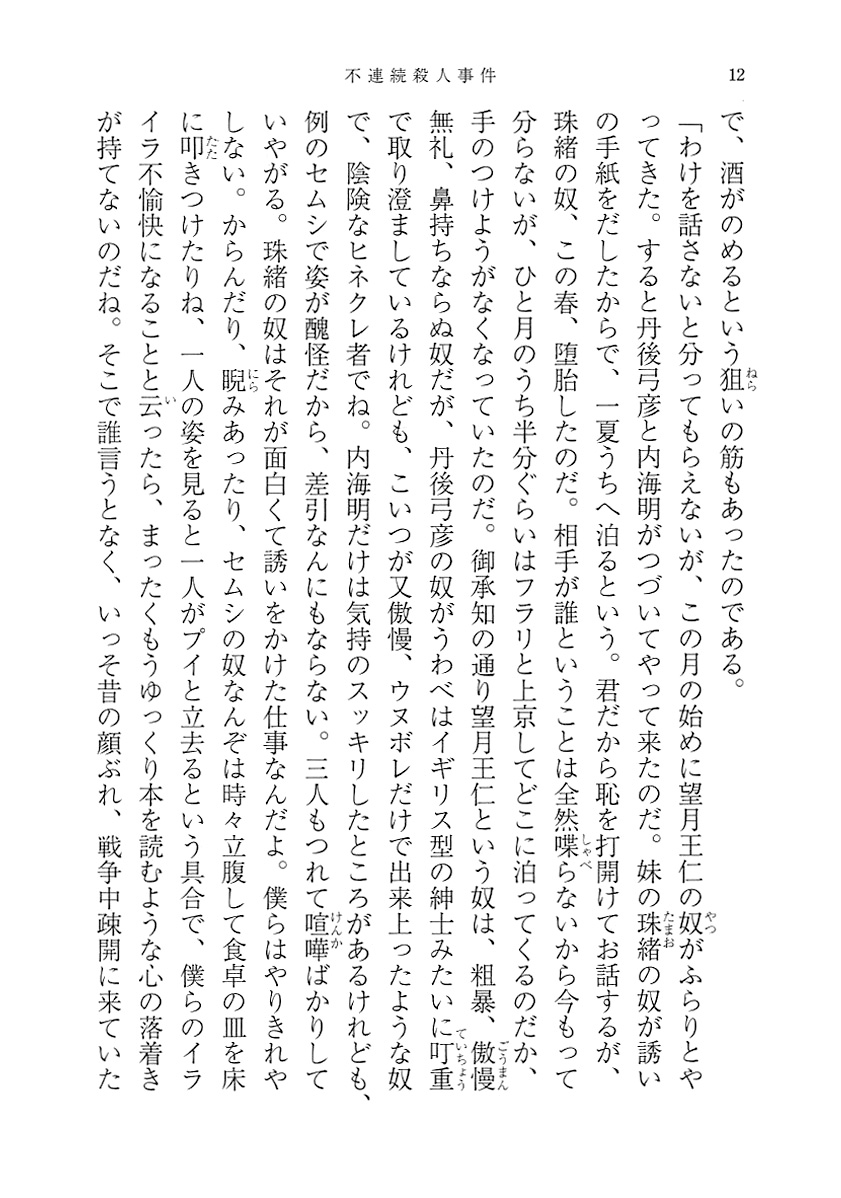 不連続殺人事件
12
で、酒がのめるという狙いの筋もあったのである。
「わけを話さないと分ってもらえないが、この月の始めに望月王仁の奴がふらりとや
ってきた。すると丹後弓彦と内海明がつづいてやって来たのだ。妹の珠緒の奴が誘い
の手紙をだしたからで、一夏うちへ泊るという。君だから恥を打開けてお話するが、
珠緒の奴、この春、堕胎したのだ。相手が誰ということは全然喋らないから今もって
分らないが、ひと月のうち半分ぐらいはフラリと上京してどこに泊ってくるのだか、
手のつけようがなくなっていたのだ。御承知の通り望月王仁という奴は、粗暴、傲慢
無礼、鼻持ちならぬ奴だが、丹後弓彦の奴がうわべはイギリス型の紳士みたいに叮重
で取り澄ましているけれども、こいつが又傲慢、ウヌボレだけで出来上ったような奴
で、陰険なヒネクレ者でね。内海明だけは気持のスッキリしたところがあるけれども、
例のセムシで姿が醜怪だから、差引なんにもならない。三人もつれて喧嘩ばかりして
いやがる。珠緒の奴はそれが面白くて誘いをかけた仕事なんだよ。僕らはやりきれや
しない。からんだり、睨みあったり、セムシの奴なんぞは時々立腹して食卓の皿を床
に叩きつけたりね、一人の姿を見ると一人がプイと立去るという具合で、僕らのイラ
イラ不愉快になることと云ったら、まったくもうゆっくり本を読むような心の落着き
が持てないのだね。そこで誰言うとなく、いっそ昔の顔ぶれ、戦争中疎開に来ていた